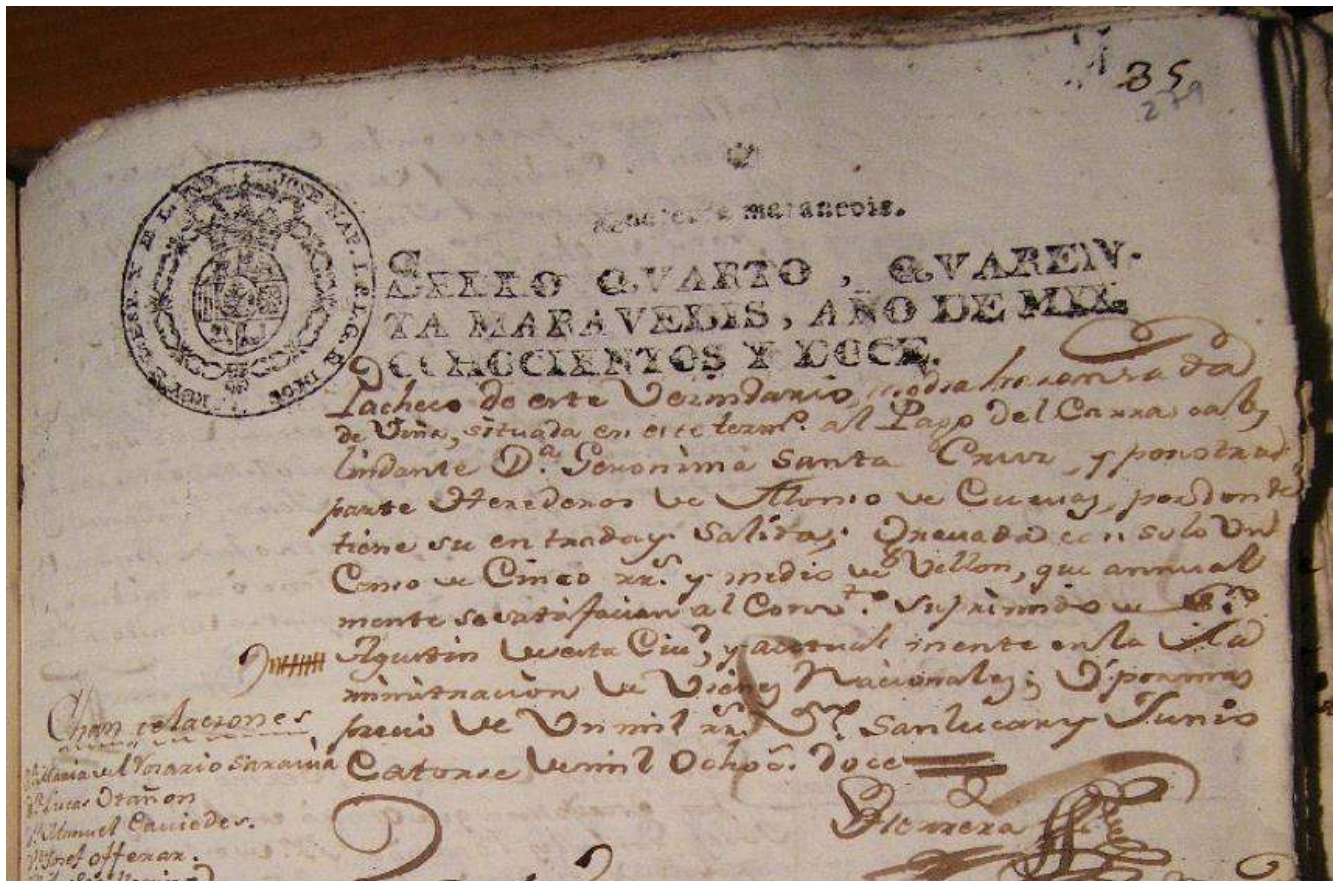 35
279
quarenta maravedis.
SELLO QVARTO, QVAREN-
TA MARAVEDIS, AÑO DE MIL
OCHOCIENTOS Y DOCE.
Pacheco de este Vecindario,
de Viña, situada en este term.º al Pago del
lindante D.ª Geronima Santa Cruz, y por otra
parte Herederos de Alonso de Cuevas, por donde
tiene su entrada y Salida; Gravada con solo Un
Censo de Cinco rr.s y medio de Vellon, que annual
mente se satisfacian al Conv.to suprimido de
Agustin de esta Ciu.d, y actual mente en la Ad
ministracion de Vienes Nacionales;
precio de Un mil rr.s Sanlucar y Junio
Catorse de mil Ochoc. doce
Chancelaciones
D.ª Maria del Rosario
D.n Lucas Otañon
D.n Manuel Caviedes.
D.n Josef
Herrera